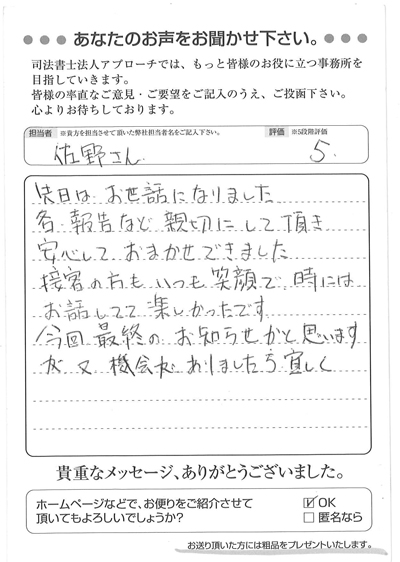 ●●● あなたのお声をお聞かせ下さい。●●●
司法書士法人アプローチでは、もっと皆様のお役に立つ事務所を
目指していきます。
皆様の率直なご意見・ご要望をご記入のうえ、ご投函下さい。
心よりお待ちしております。
担当者 ※貴方を担当させて頂いた弊社担当者名をご記入下さい。 評価 ※5段階評価
佐野さん 5.
先日は お世話になりました
各 報告など 親切にして頂き
安心して おまかせできました
接客の方も いつも 笑顔で 時には
お話してて 楽しかったです
今回 最終の お知らせかと思います
が 又 機会が ありましたら 宜しく
貴重なメッセージ、ありがとうございました。
ホームページなどで、お便りをご紹介させて
頂いてもよろしいでしょうか?
☑ OK
□ 匿名なら
お送り頂いた方には粗品をプレゼントいたします。